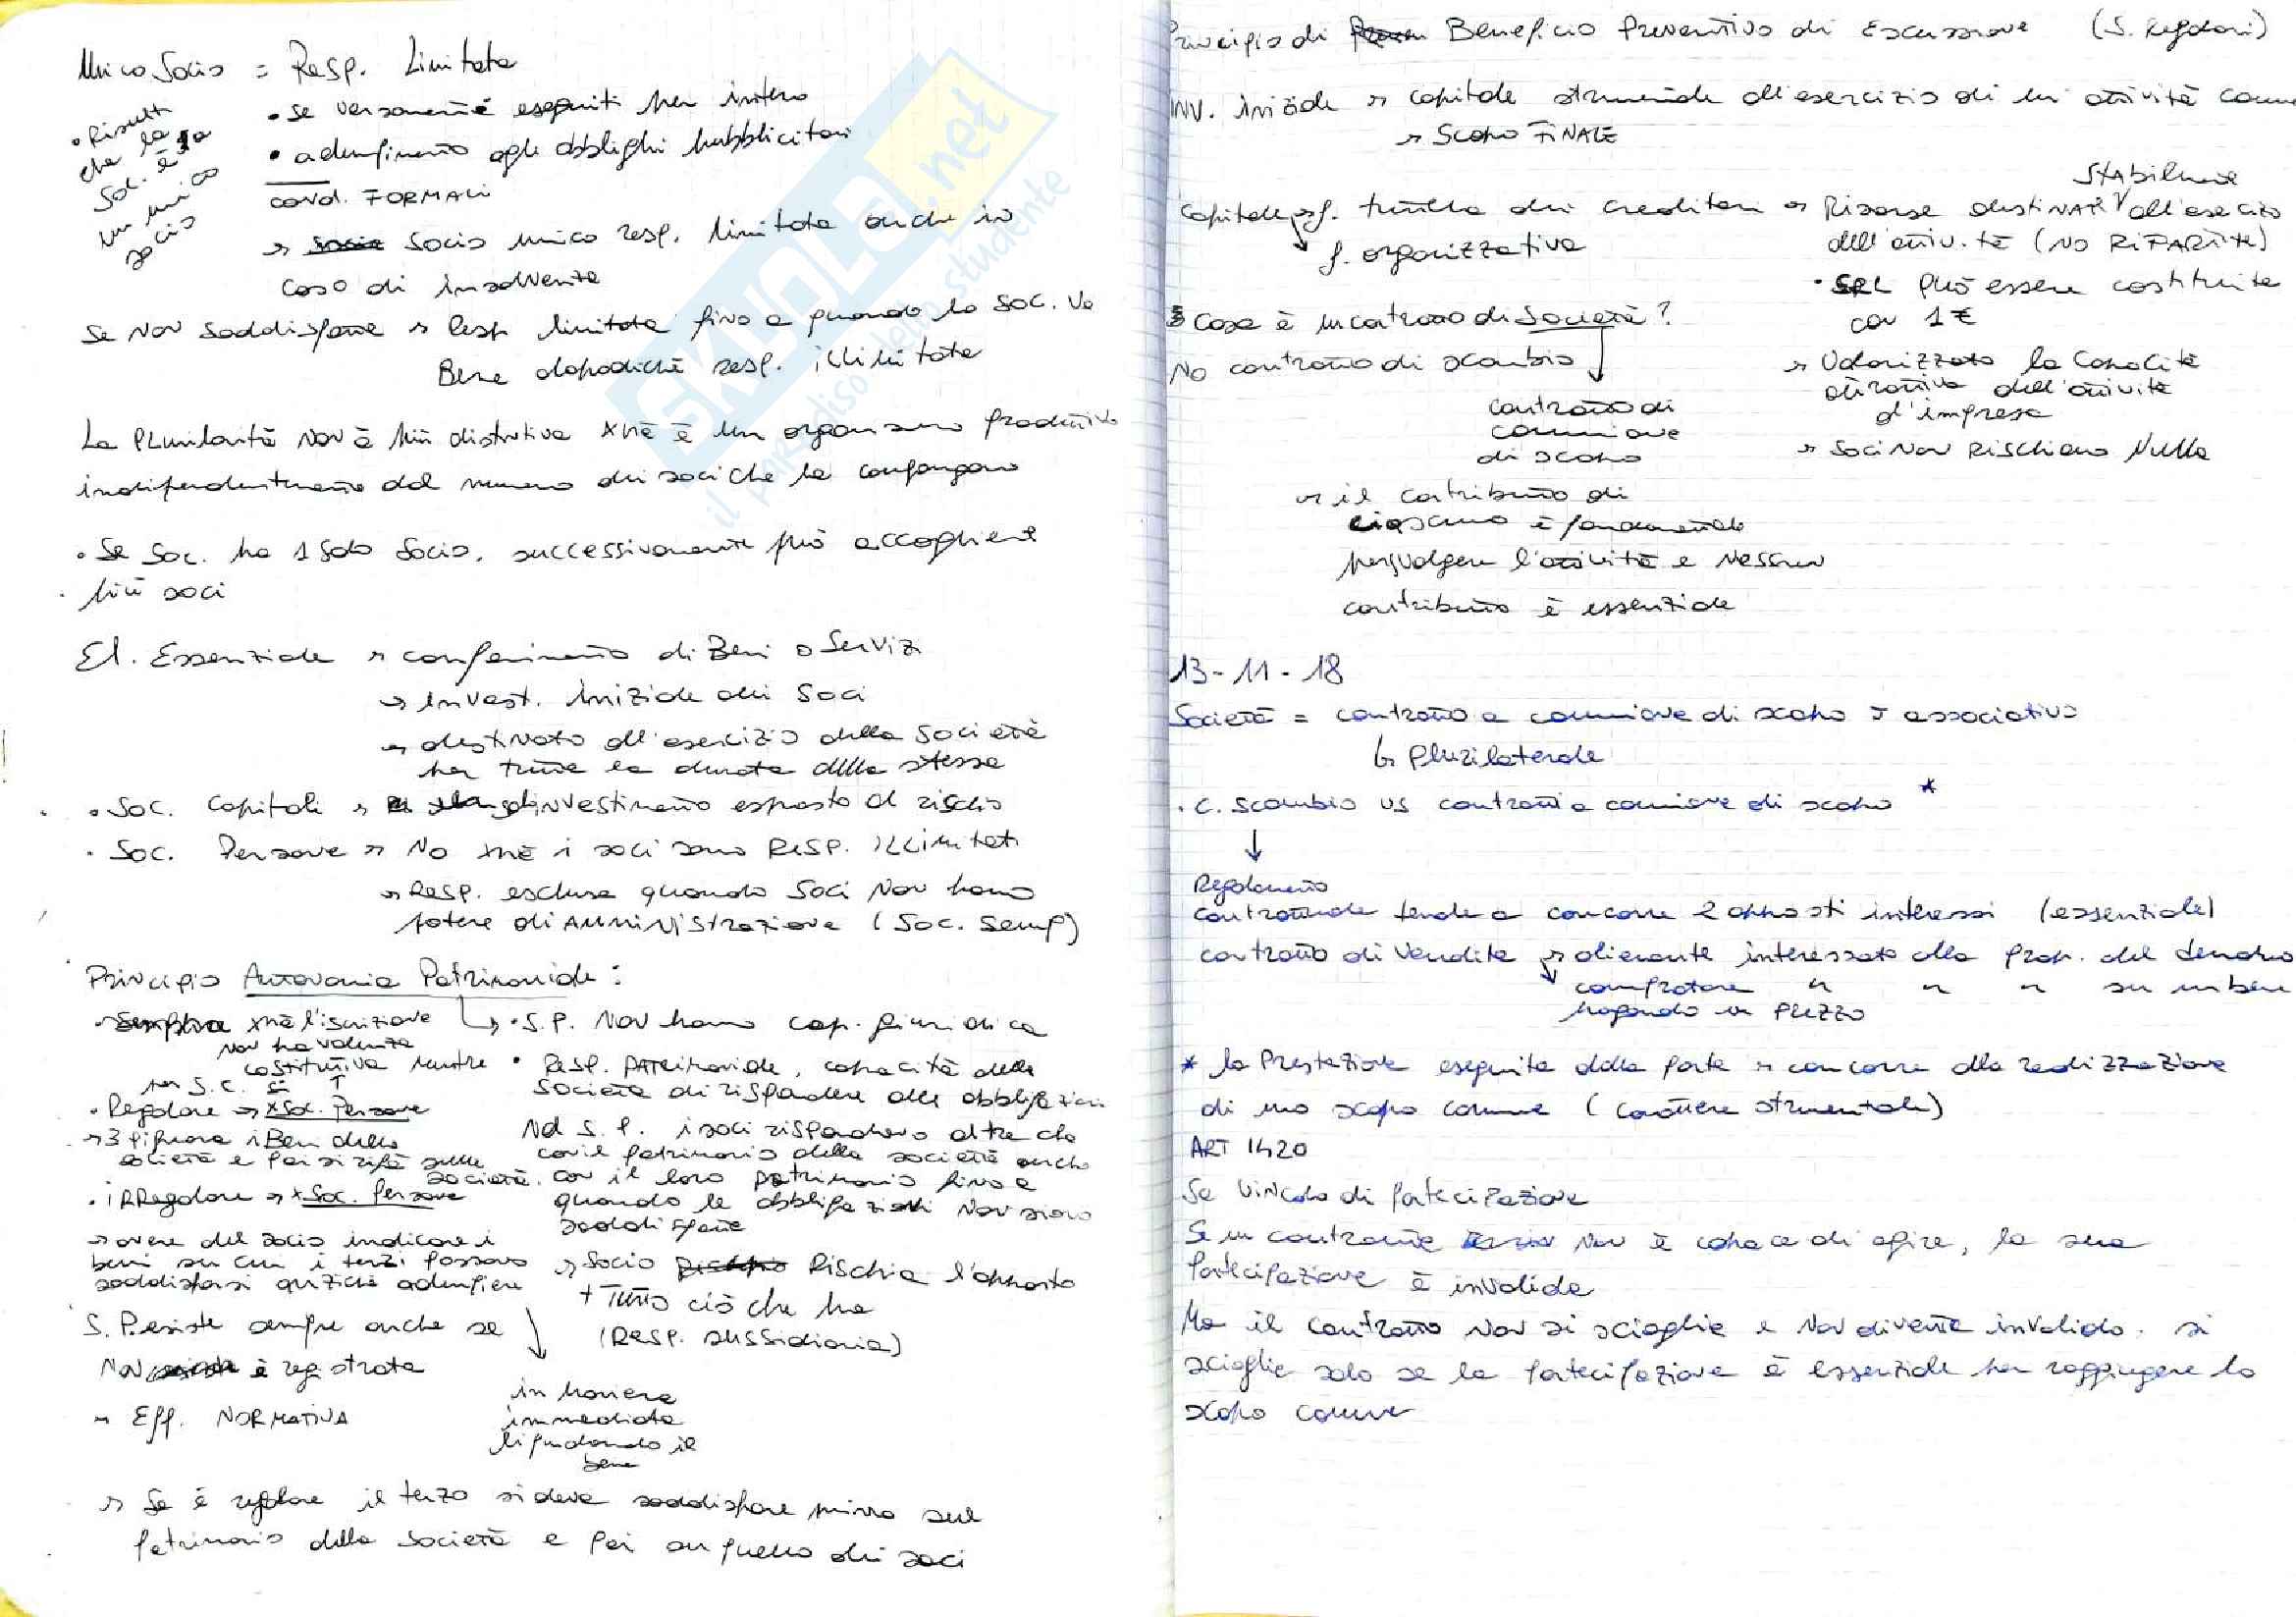 Unico Socio = Resp. Limitata
• Risulti che la soc. è da un unico socio
• se versamenti eseguiti per intero
• adempimento agli obblighi pubblicitari
cond. FORMALI
→ socio unico resp. limitata anche in
caso di insolvenza
Se non soddisfatte → Resp limitata fino a quando la soc. va
Bene dopodiché resp. illimitata
La Plurilarità non è più distintiva xké è un organismo produttivo
indipendentemente dal numero dei soci che la compongono
• Se Soc. ha 1 solo Socio, successivamente può accogliere
più soci
El. Essenziale → conferimento di Beni o Servizi
→ Invest. iniziale dei Soci
→ destinato all'esercizio della società
per tutta la durata della stessa
• Soc. Capitali → investimento esposto al rischio
• Soc. Persone → No xké i soci sono RESP. illimitati
→ RESP. esclusa quando Soci Non hanno
potere di AMMINISTRAZIONE (Soc. Semp)
Principio Autonomia Patrimoniale:
• Semplice xké l'iscrizione
non ha valenza
costitutiva mentre
per S.C. sì
• Regolare → xSoc. Persone
→ 3 pignora i Beni della
società e poi si rifà sulla
società.
• iRRegolare → xSoc. Persone
→ onere del socio indicare i
beni su cui i terzi possono
soddisfarsi anziché adempiere
S. P. esiste sempre anche se
Non è registrata
→ Eff. NORMATIVA
→ • S.P. Non hanno cap. giuridica
• Resp. PATRIMONIALE, capacità della
società di rispondere alle obbligazioni
Nel S.P. i soci rispondono oltre che
con il patrimonio della società anche
con il loro patrimonio fino a
quando le obbligazioni Non siano
soddisfatte
→ Socio Rischia l'apporto
+ Tutto ciò che ha
(Resp. sussidiaria)
in maniera
immediata
liquidando il
bene
→ Se è regolare il terzo si deve soddisfare prima sul
patrimonio della società e poi su quello dei soci
Principio di Beneficio Preventivo di Escussione (S. Regolari)
INV. iniziale → capitale strumentale all'esercizio di un' attività comune
→ Scopo FINALE
Capitale → f. tutela dei creditori → Risorse destinate stabilmente all'esercizio
dell'attività (NO RIPARTITE)
f. organizzativa
• SRL può essere costituita
con 1 €
→ Valorizzata la Capacità
attrattiva dell'attività
d'impresa
→ Soci Non Rischiano Nulla
Cosa è un contratto di Società?
No contratto di scambio
contratto di
comunione
di scopo
→ il contributo di
ciascuno è fondamentale
per svolgere l'attività e Nessun
contributo è essenziale
13-11-18
Società = contratto a comunione di scopo è associativo
↳ Plurilaterale
• C. scambio vs contratti a comunione di scopo *
Regolamento
contrattuale tende a concorre 2 opposti interessi (essenziale)
contratto di Vendita → alienante interessato alla prop. del denaro
compratore " " " su un bene
pagando un Prezzo
* la Prestazione eseguita dalla parte → concorre alla realizzazione
di uno scopo comune (carattere strumentale)
ART 1420
Se vincolo di partecipazione
Se un contraente Non è capace di agire, la sua
partecipazione è invalida
Ma il contratto Non si scioglie e Non diventa invalido. si
scioglie solo se la partecipazione è essenziale per raggiungere lo
scopo comune
SKUOLA.net
il paradiso dello studente